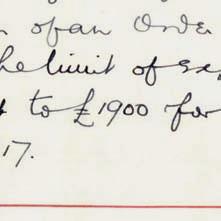 of an Order
the limit of
to £1900 for
17.